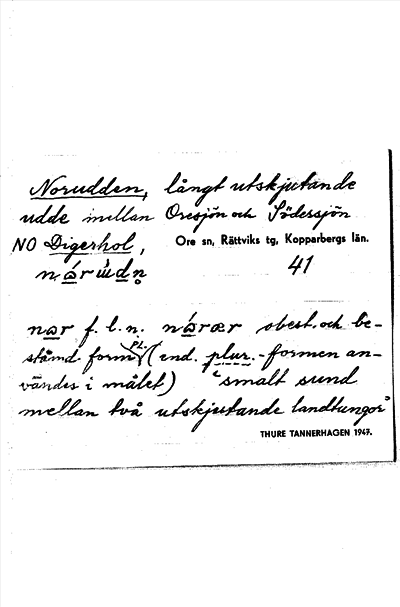 Norudden, långt utskjutande
udde mellan Oresjön och Södersjön
NO Digerhol, Ore sn, Rättviks tg, Kopparbergs län.
41
nar f. l. n. obest. och be-
stämd form pl. (end. plur.-formen an-
vändes i målet) "smalt sund
mellan två utskjutande landtungor"
THURE TANNERHAGEN 1947.